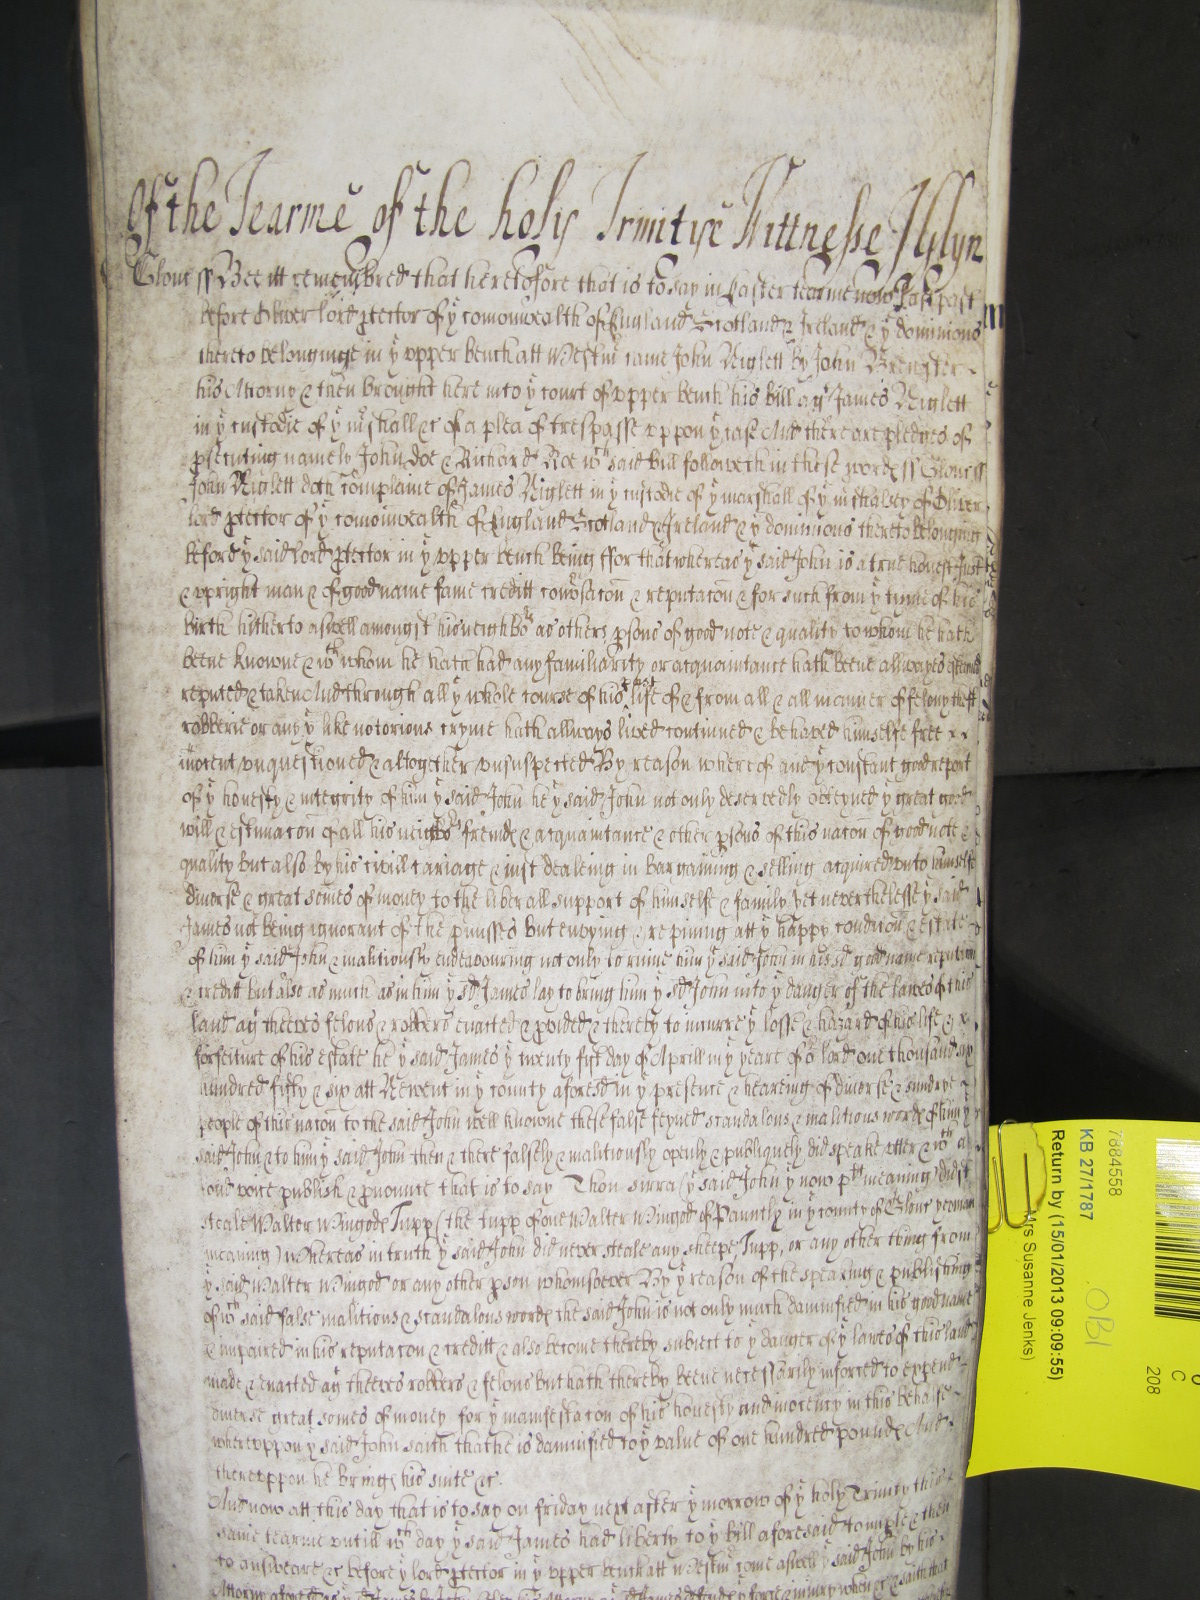 Of the Tearme of the holy Trinitye Wittnesse J Glyn
Glouc ss Bee itt remembred that heretofore that is to say in Easter tearme now last past
before Oliver lord ptector of y comonwealth of England Scotland & Ireland & y dominions
thereto belonginge in y upper bench att Westm came John Niglett by John Brewster
his Attorny & then brought here into y court of upper bench his bill ag James Niglett
in y custodie of y mshall &c of a plea of trespasse uppon y case And there are pledges of
psecuting namely John Doe & Richard Roe wch said bill followeth in these words ss Glouc ss
John Niglett doth complaine of James Niglett in y custodie of y marshall of y mshalcy of Oliver
lord ptector of y comonwealth of England Scotland & Ireland & y dominions thereto belonging
before y said lord ptector in y upper bench being ffor that whereas y said John is a true honest just
& upright man & of good name fame creditt convsacon & reputacon & for such from y time of his
birth hitherto aswell amongst his neighbors as others psons of good note & quality to whom he hath
beene knowne & wth whom he hath had any familiarity or acquaintance hath beene allwayes esteemed
reputed & taken And through all y whole course of his past life of & from all & all manner of felony theft
robberie or any y like notorious cryme hath allways lived continued & behaved himselfe free
inocent unquestioned & altogether unsuspected By reason whereof and y constant good report
of y honesty & integrity of him y said John he y said John not only deservedly obteyned y great good
will & estimacon of all his neighbors freinds & acquaintance & other psons of this nacon of good note &
quality but also by his civill cariage & just dealeing in bargaining & selling acquired unto himselfe
diverse & great somes of money to the liberall support of himselfe & family Yet neverthelesse y said
James not being ignorant of the pmisses but envying & repining att y happy condicon & estate
of him y said John & malitiously endeavouring not only to ruine him y said John in his sd good name reputacon
& creditt but also as much as in him y sd James lay to bring him y sd John into y danger of the lawes of this
land ag theeves felons & robbers enacted & pvided & thereby to incurre y losse & hazard of his life &
forfeiture of his estate he y said James y twenty fyt day of Aprill in y yeare of o lord one thousand six
hundred fifty & six att Newent in y county aforesd in y presence & heareing of diverse & sundrye
people of this nacon to the said John well knowne these false feyned scandalous & malitious words of him y
said John & to him y said John then & there falsely & malitiously openly & publiquely did speake utter & wth a
loud voice publish & pnounce that is to say Thou sirra (y said John y now plt meaning) didst
steale Walter Wingods Tupp (the tupp of one Walter Wingod of Pauntly in y county of Glouc yeoman
meaning) Whereas in truth y said John did never steale any sheepe, Tupp, or any other thing from
y said Walter Wingod or any other pson whomsoever By y reason of the speaking & publishing
of wch said false malitious & scandalous words the said John is not only much damnified in his good name
& impaired in his reputacon & creditt & also become thereby subiect to y danger of y lawes of this land
made & enacted ag theeves robbers & felons but hath thereby beene necessarily inforced to expend
diverse great somes of money for y manifestacon of his honesty and inocency in this behalfe
whereuppon y said John saith that he is damnified to y value of one hundred pounds And
thereuppon he brings his suite &c.
And now att this day that is to say on friday next after y morrow of y holy Trinity this
same tearme untill wch day y said James had liberty to y bill aforesaid to imple & then
to answeare &c before y lord ptector in y upper bench att Westm come aswell y said John by his
7884558
KB 27/1787
Return by (15/01/2013 09:09:55)
Mrs Susanne Jenks)
OBI
C
208